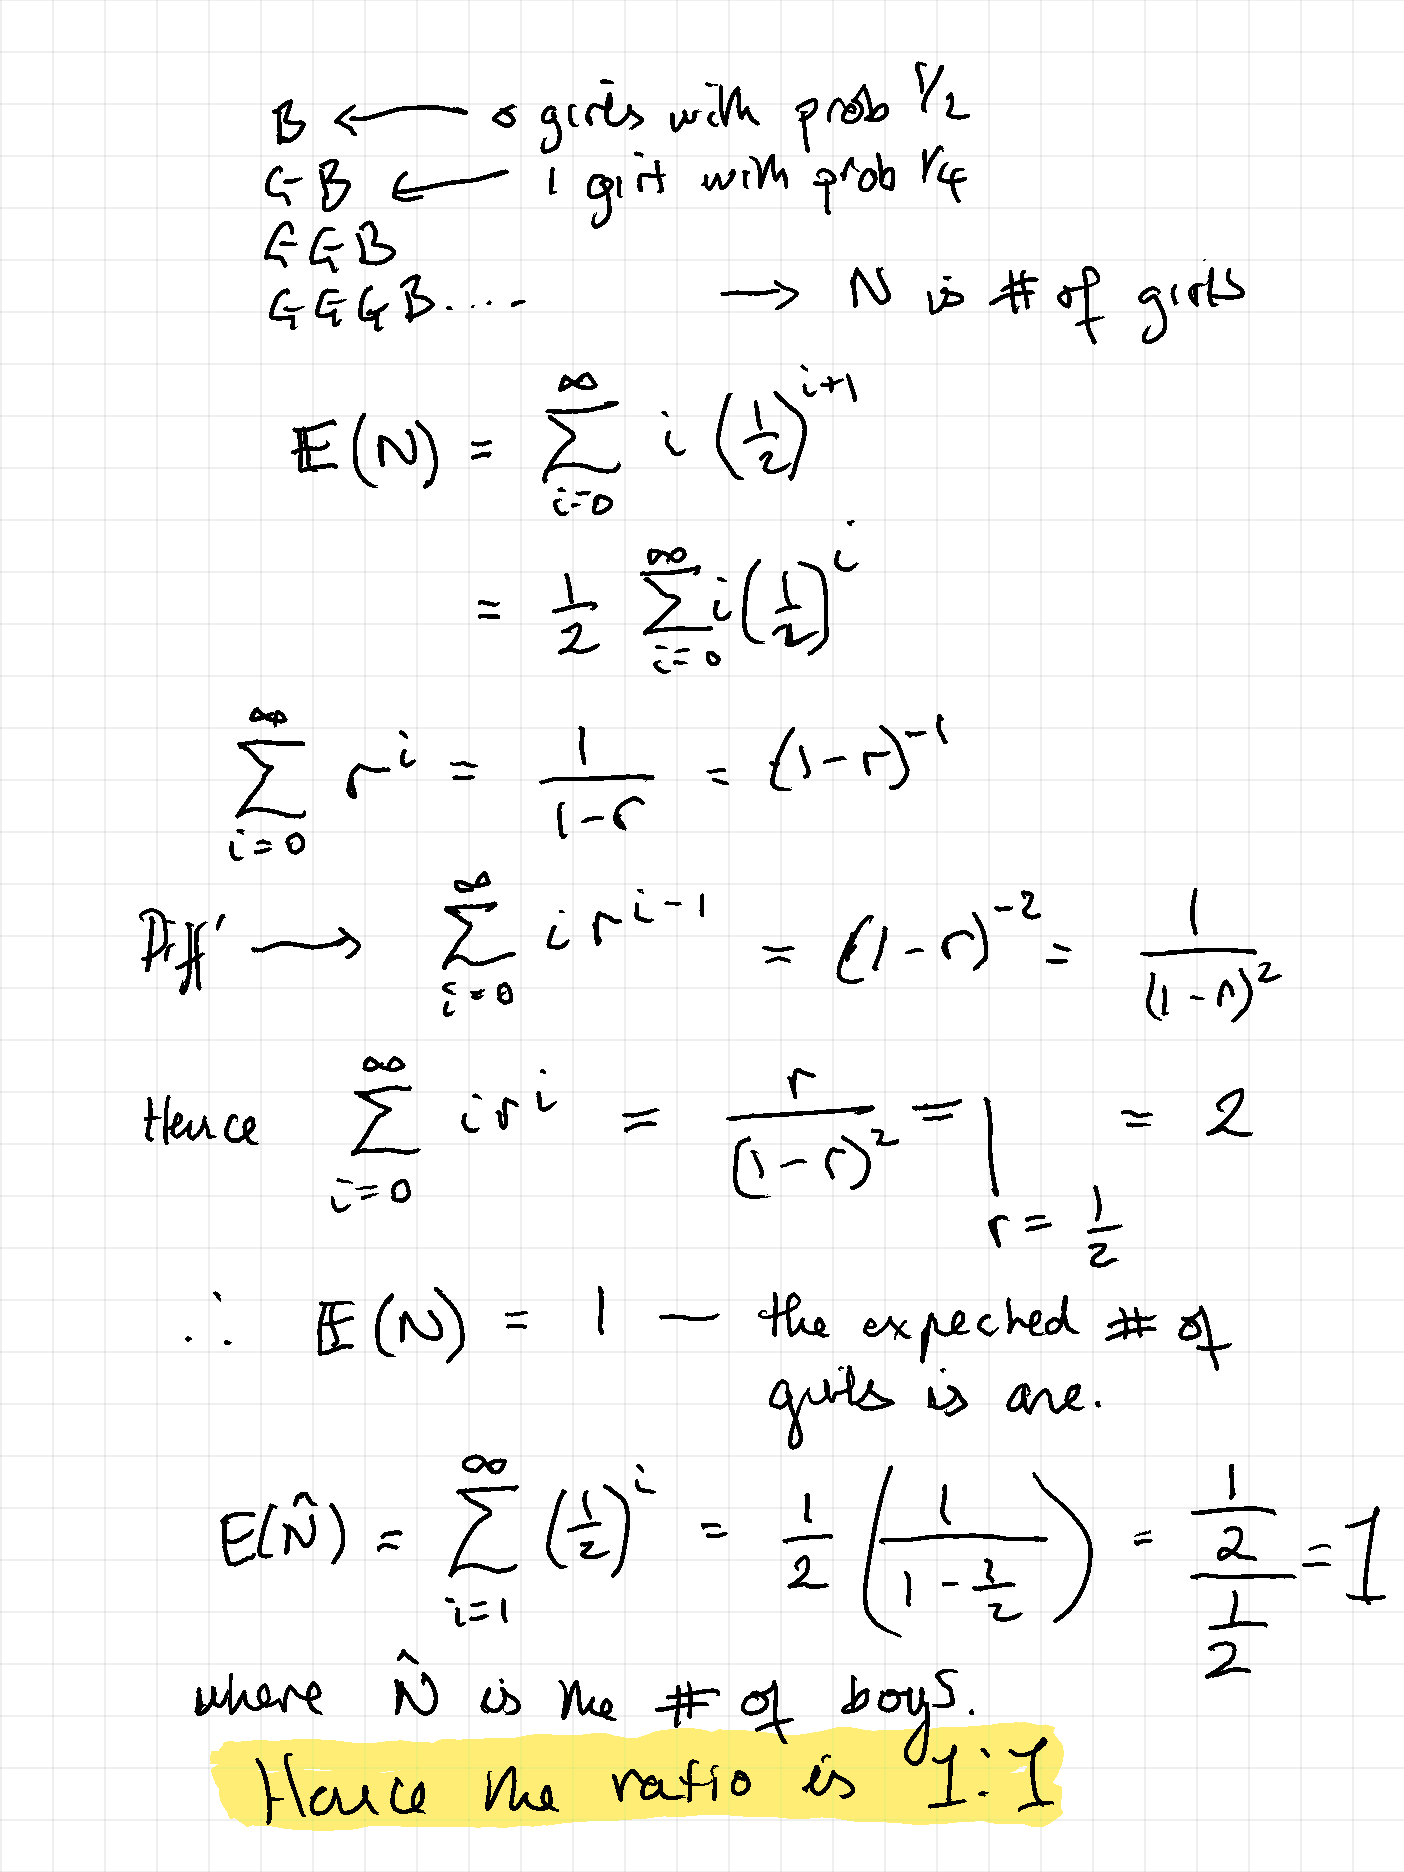 B ← 0 girls with prob 1/2
GB ← 1 girl with prob 1/4
GGB
GGGB.... → N is # of girls
𝔼(N) = ∑_{i=0}^{∞} i (1/2)^{i+1}
= 1/2 ∑_{i=0}^{∞} i (1/2)^i
∑_{i=0}^{∞} r^i = 1/(1-r) = (1-r)^{-1}
Diff' → ∑_{i=0}^{∞} i r^{i-1} = (1-r)^{-2} = 1/(1-r)^2
Hence ∑_{i=0}^{∞} i r^i = r/(1-r)^2 = |_{r=1/2} = 2
∴ 𝔼(N) = 1 — the expected # of
girls is one.
E(N̂) = ∑_{i=1}^{∞} (1/2)^i = 1/2 (1/(1-1/2)) = (1/2)/(1/2) = 1
where N̂ is the # of boys.
Hence the ratio is 1:1